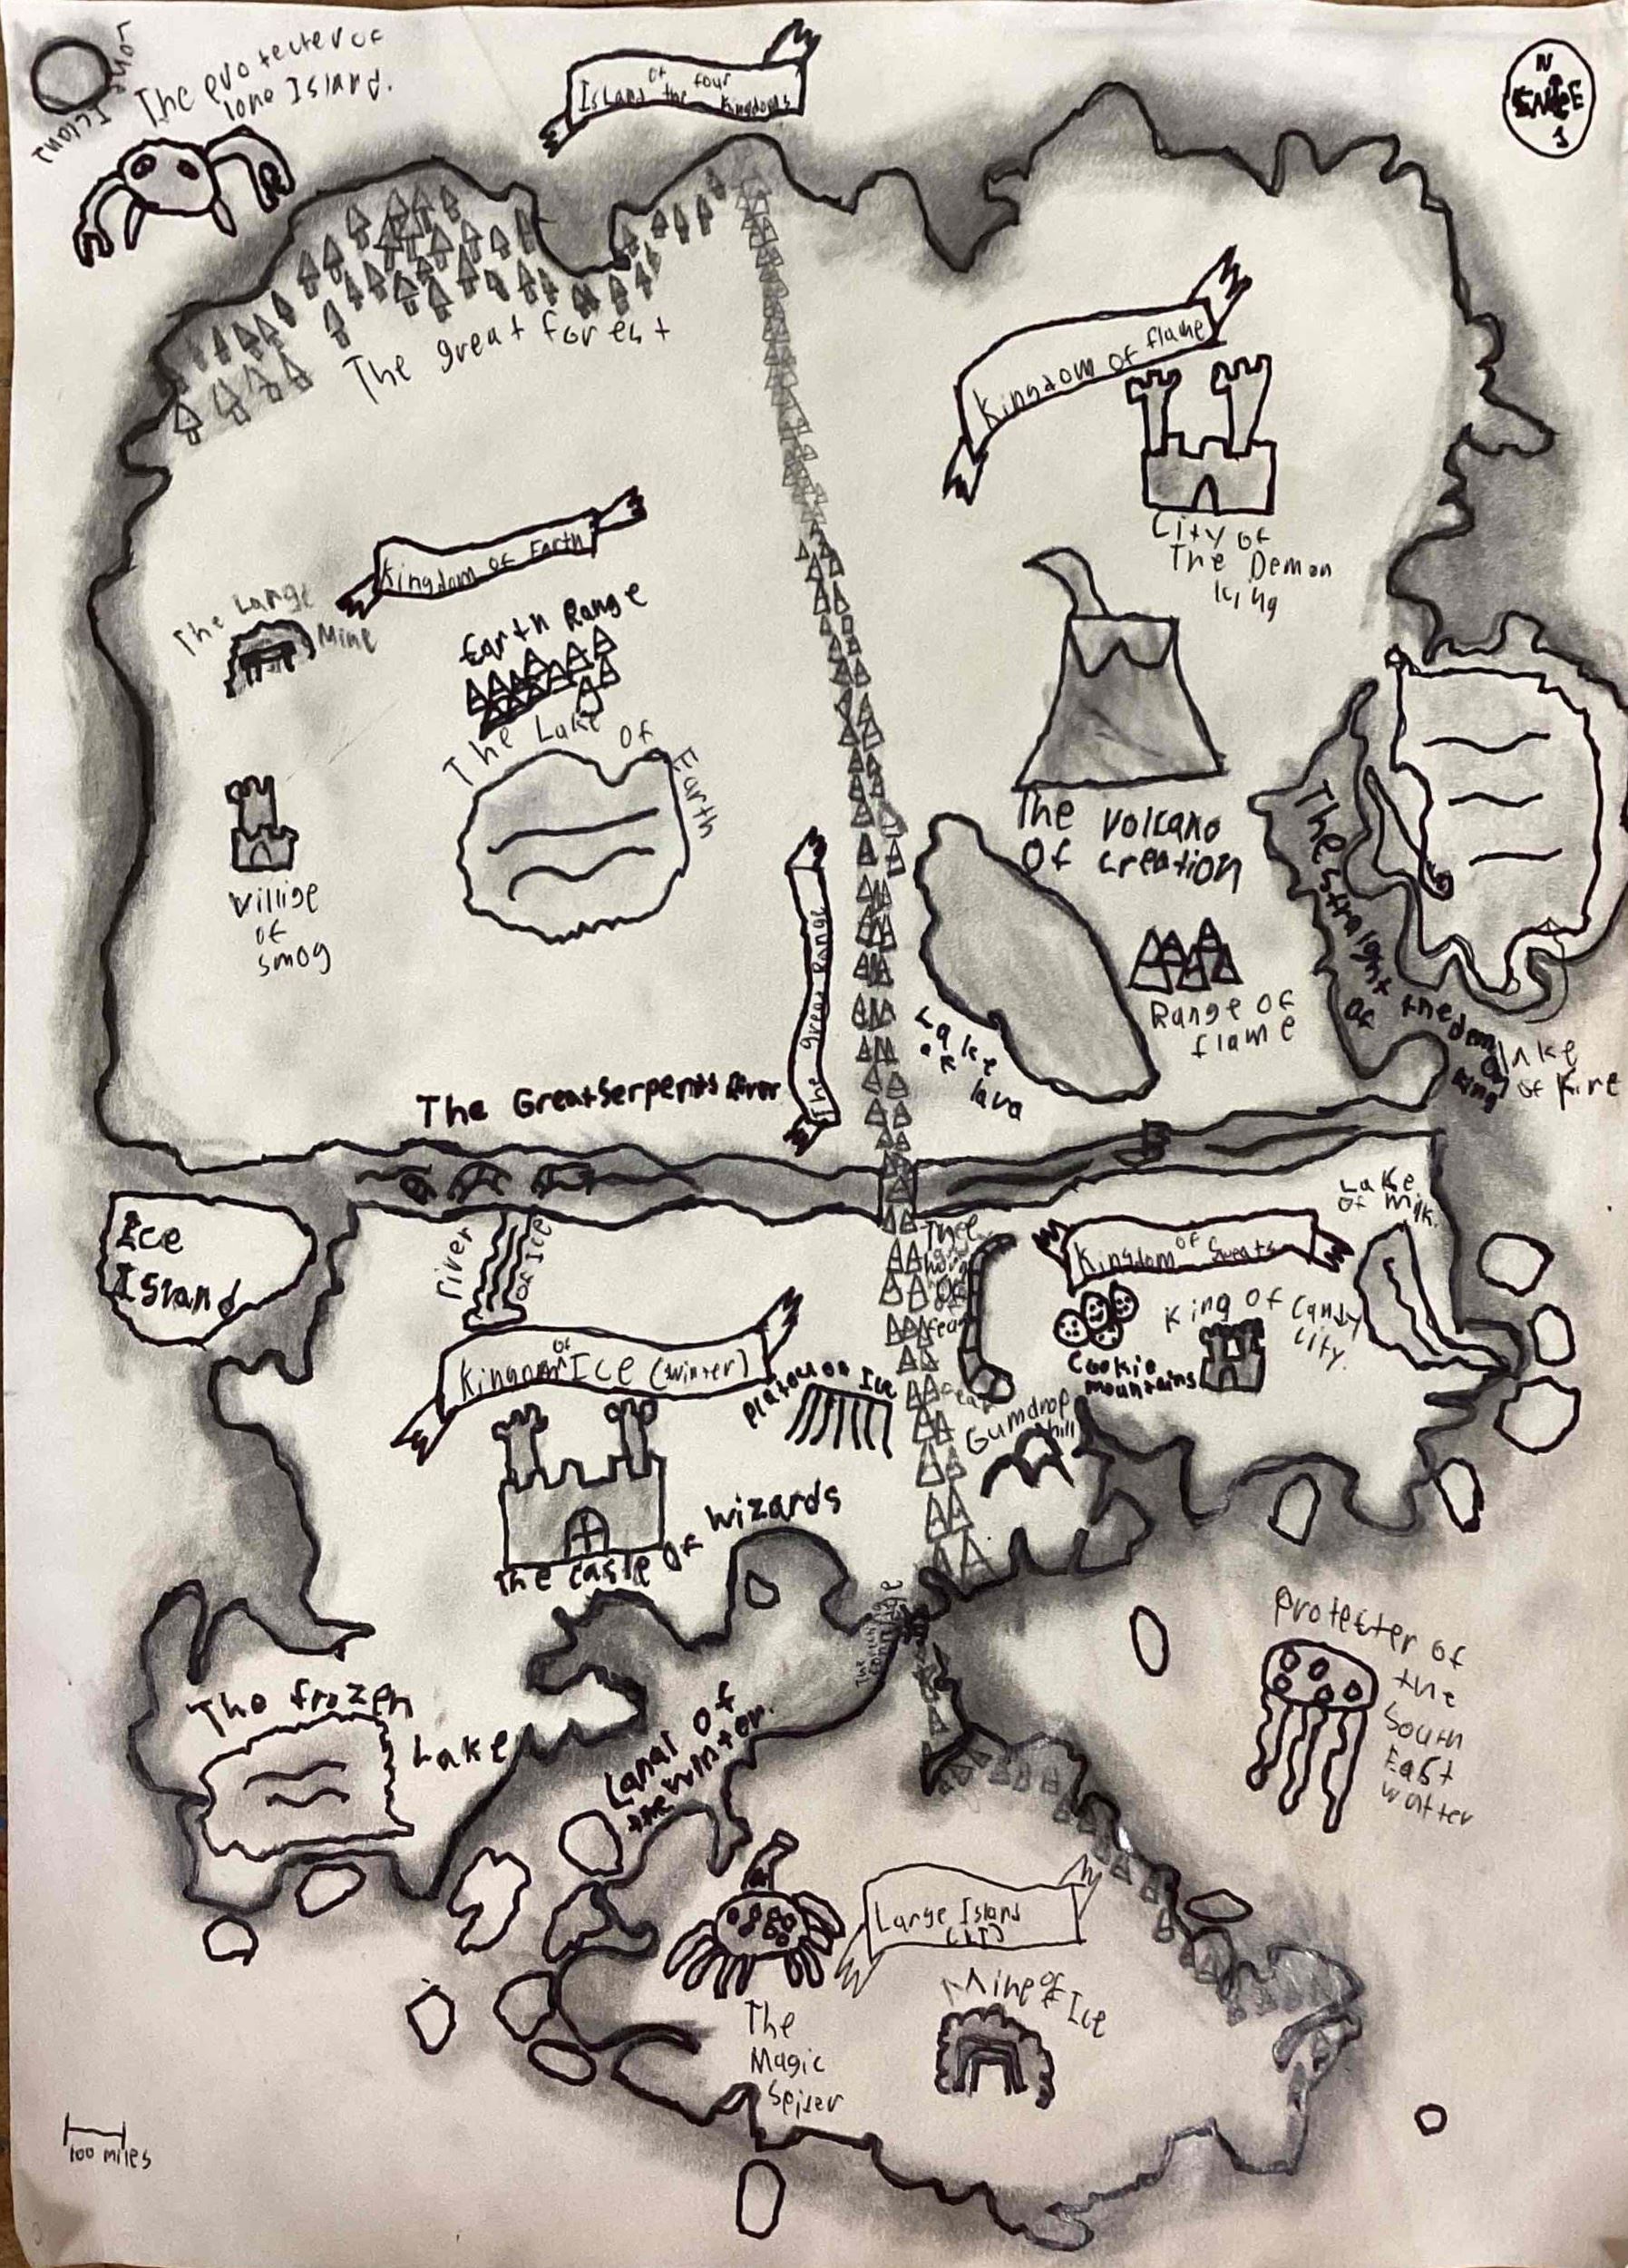 Lone Island
The protecter of
lone Island.
Island of the four Kingdoms
N
E
The great forest
Kingdom of flame
City of
The Demon
King
Kingdom of Earth
The Large
Mine
Earth Range
The Lake of Earth
Villige
of
smog
The Volcano
Of Creation
The straight of the demon king
Range of
flame
Lake
of
lava
lake
of Fire
The Great Range
The Great Serpents River
Ice
Island
River of Ice
Kingdom of Ice (winter)
Platou on Ice
Lake
of milk.
Kingdom of Sweats
King of Candy
City.
Cookie
mountains
Gumdrop
hill
The Castle of Wizards
The frozen
Lake
Canal of
the winter.
Protecter of
the
South
East
watter
Large Island
(LI)
Mine of Ice
The
Magic
Spider
100 miles